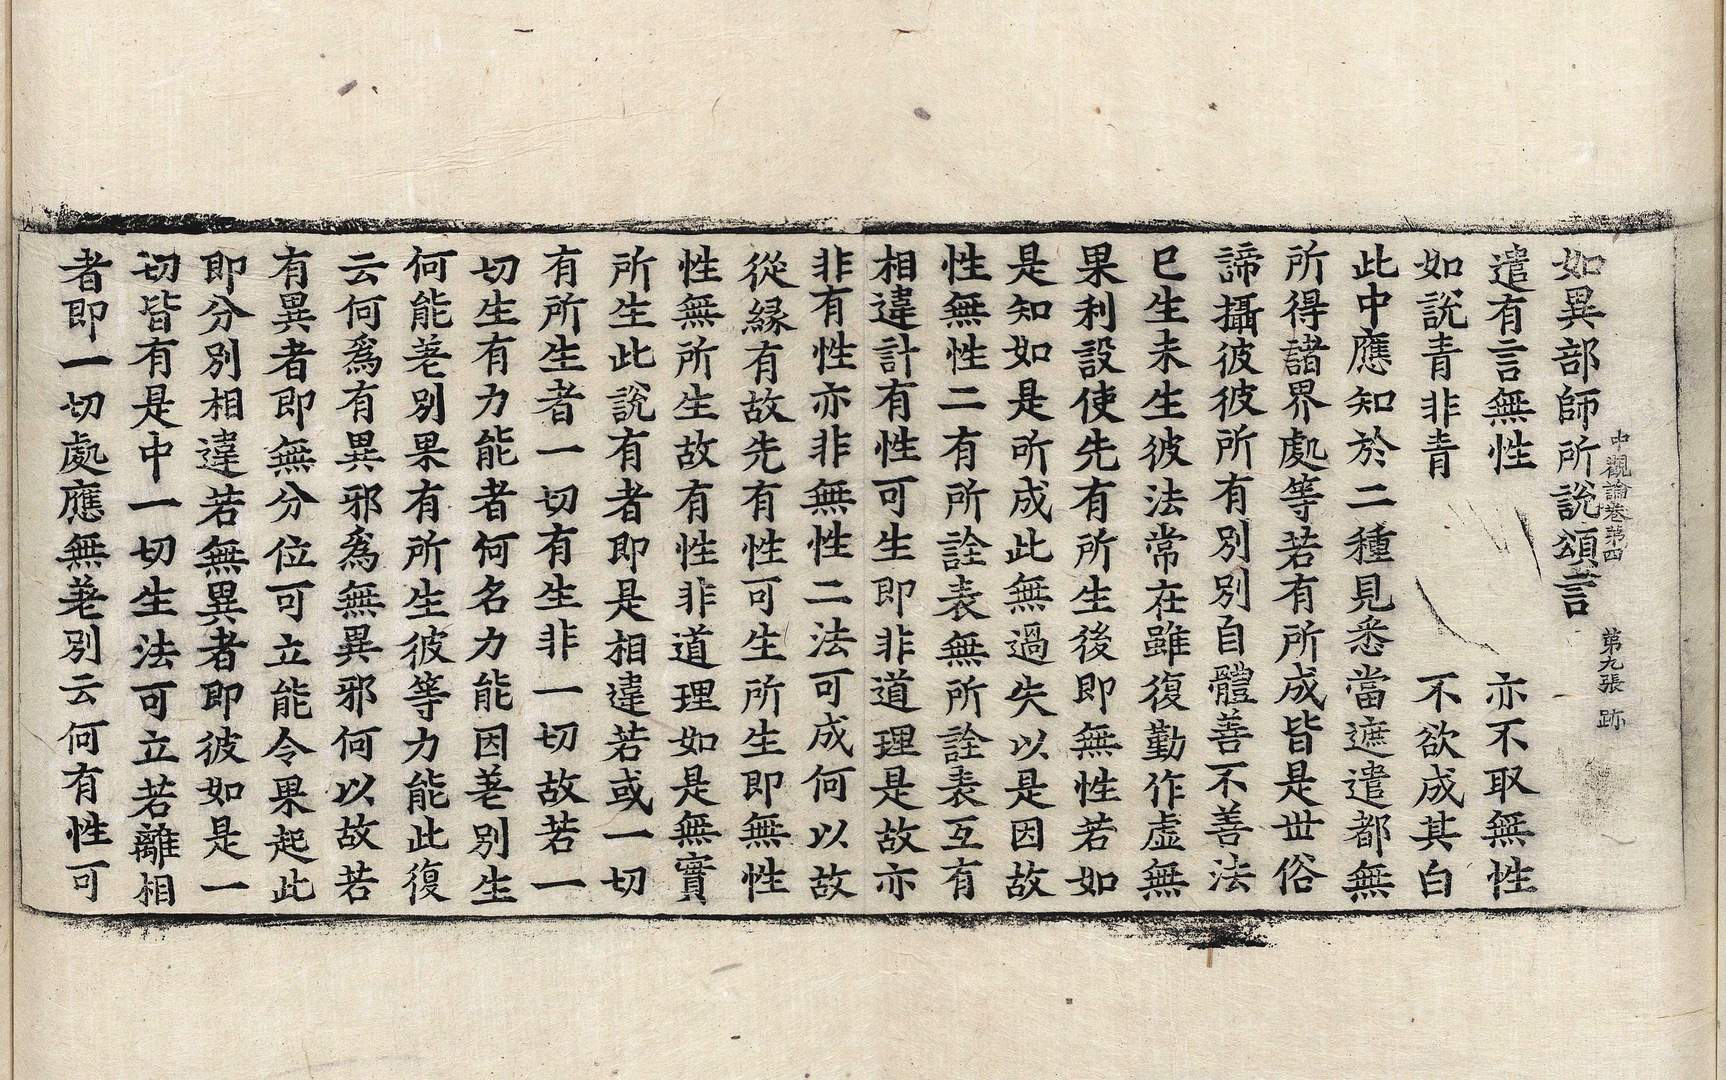 如異部師所說頌言
中觀論卷第四　第九張　跡
遣有言無性　亦不取無性
如說青非青　不欲成其白
此中應知於二種見悉當遮遣都無
所得諸界處等若有所成皆是世俗
諦攝彼彼所有別別自體善不善法
已生未生彼法常在雖復勤作虛無
果利設使先有所生後即無性若如
是知如是所成此無過失以是因故
性無性二有所詮表無所詮表互有
相違計有性可生即非道理是故亦
非有性亦非無性二法可成何以故
從緣有故先有性可生所生即無性
性無所生故有性非道理如是無實
所生此說有者即是相違若或一切
有所生者一切有生非一切故若一
切生有力能者何名力能因差別生
何能差別果有所生彼等力能此復
云何為有異邪為無異邪何以故若
有異者即無分位可立能令果起此
即分別相違若無異者即彼如是一
切皆有是中一切生法可立若離相
者即一切處應無差別云何有性可